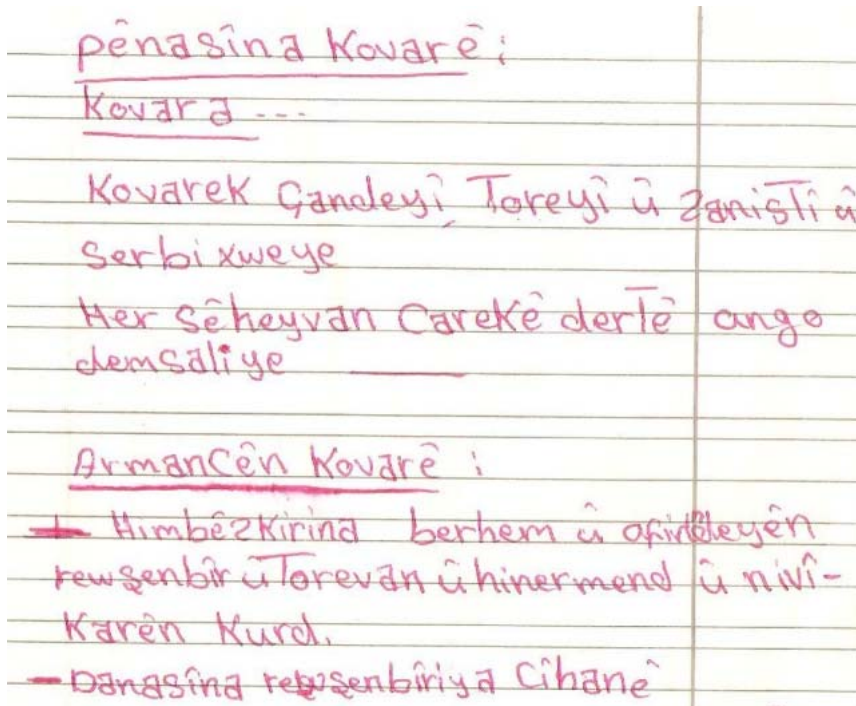 Pênasîna Kovarê:
Kovara ---
Kovarek Çandeyî Toreyî û Zanistî û
Serbixweye
Her Sêheyvan Carekê derTê ango
demsaliye
Armancên Kovarê :
+ Himbêzkirina berhem û afirîdeyên
rewşenbîr û Torevan û hinermend û nivî-
Karên Kurd.
- Danasîna rewşenbîriya Cîhanê